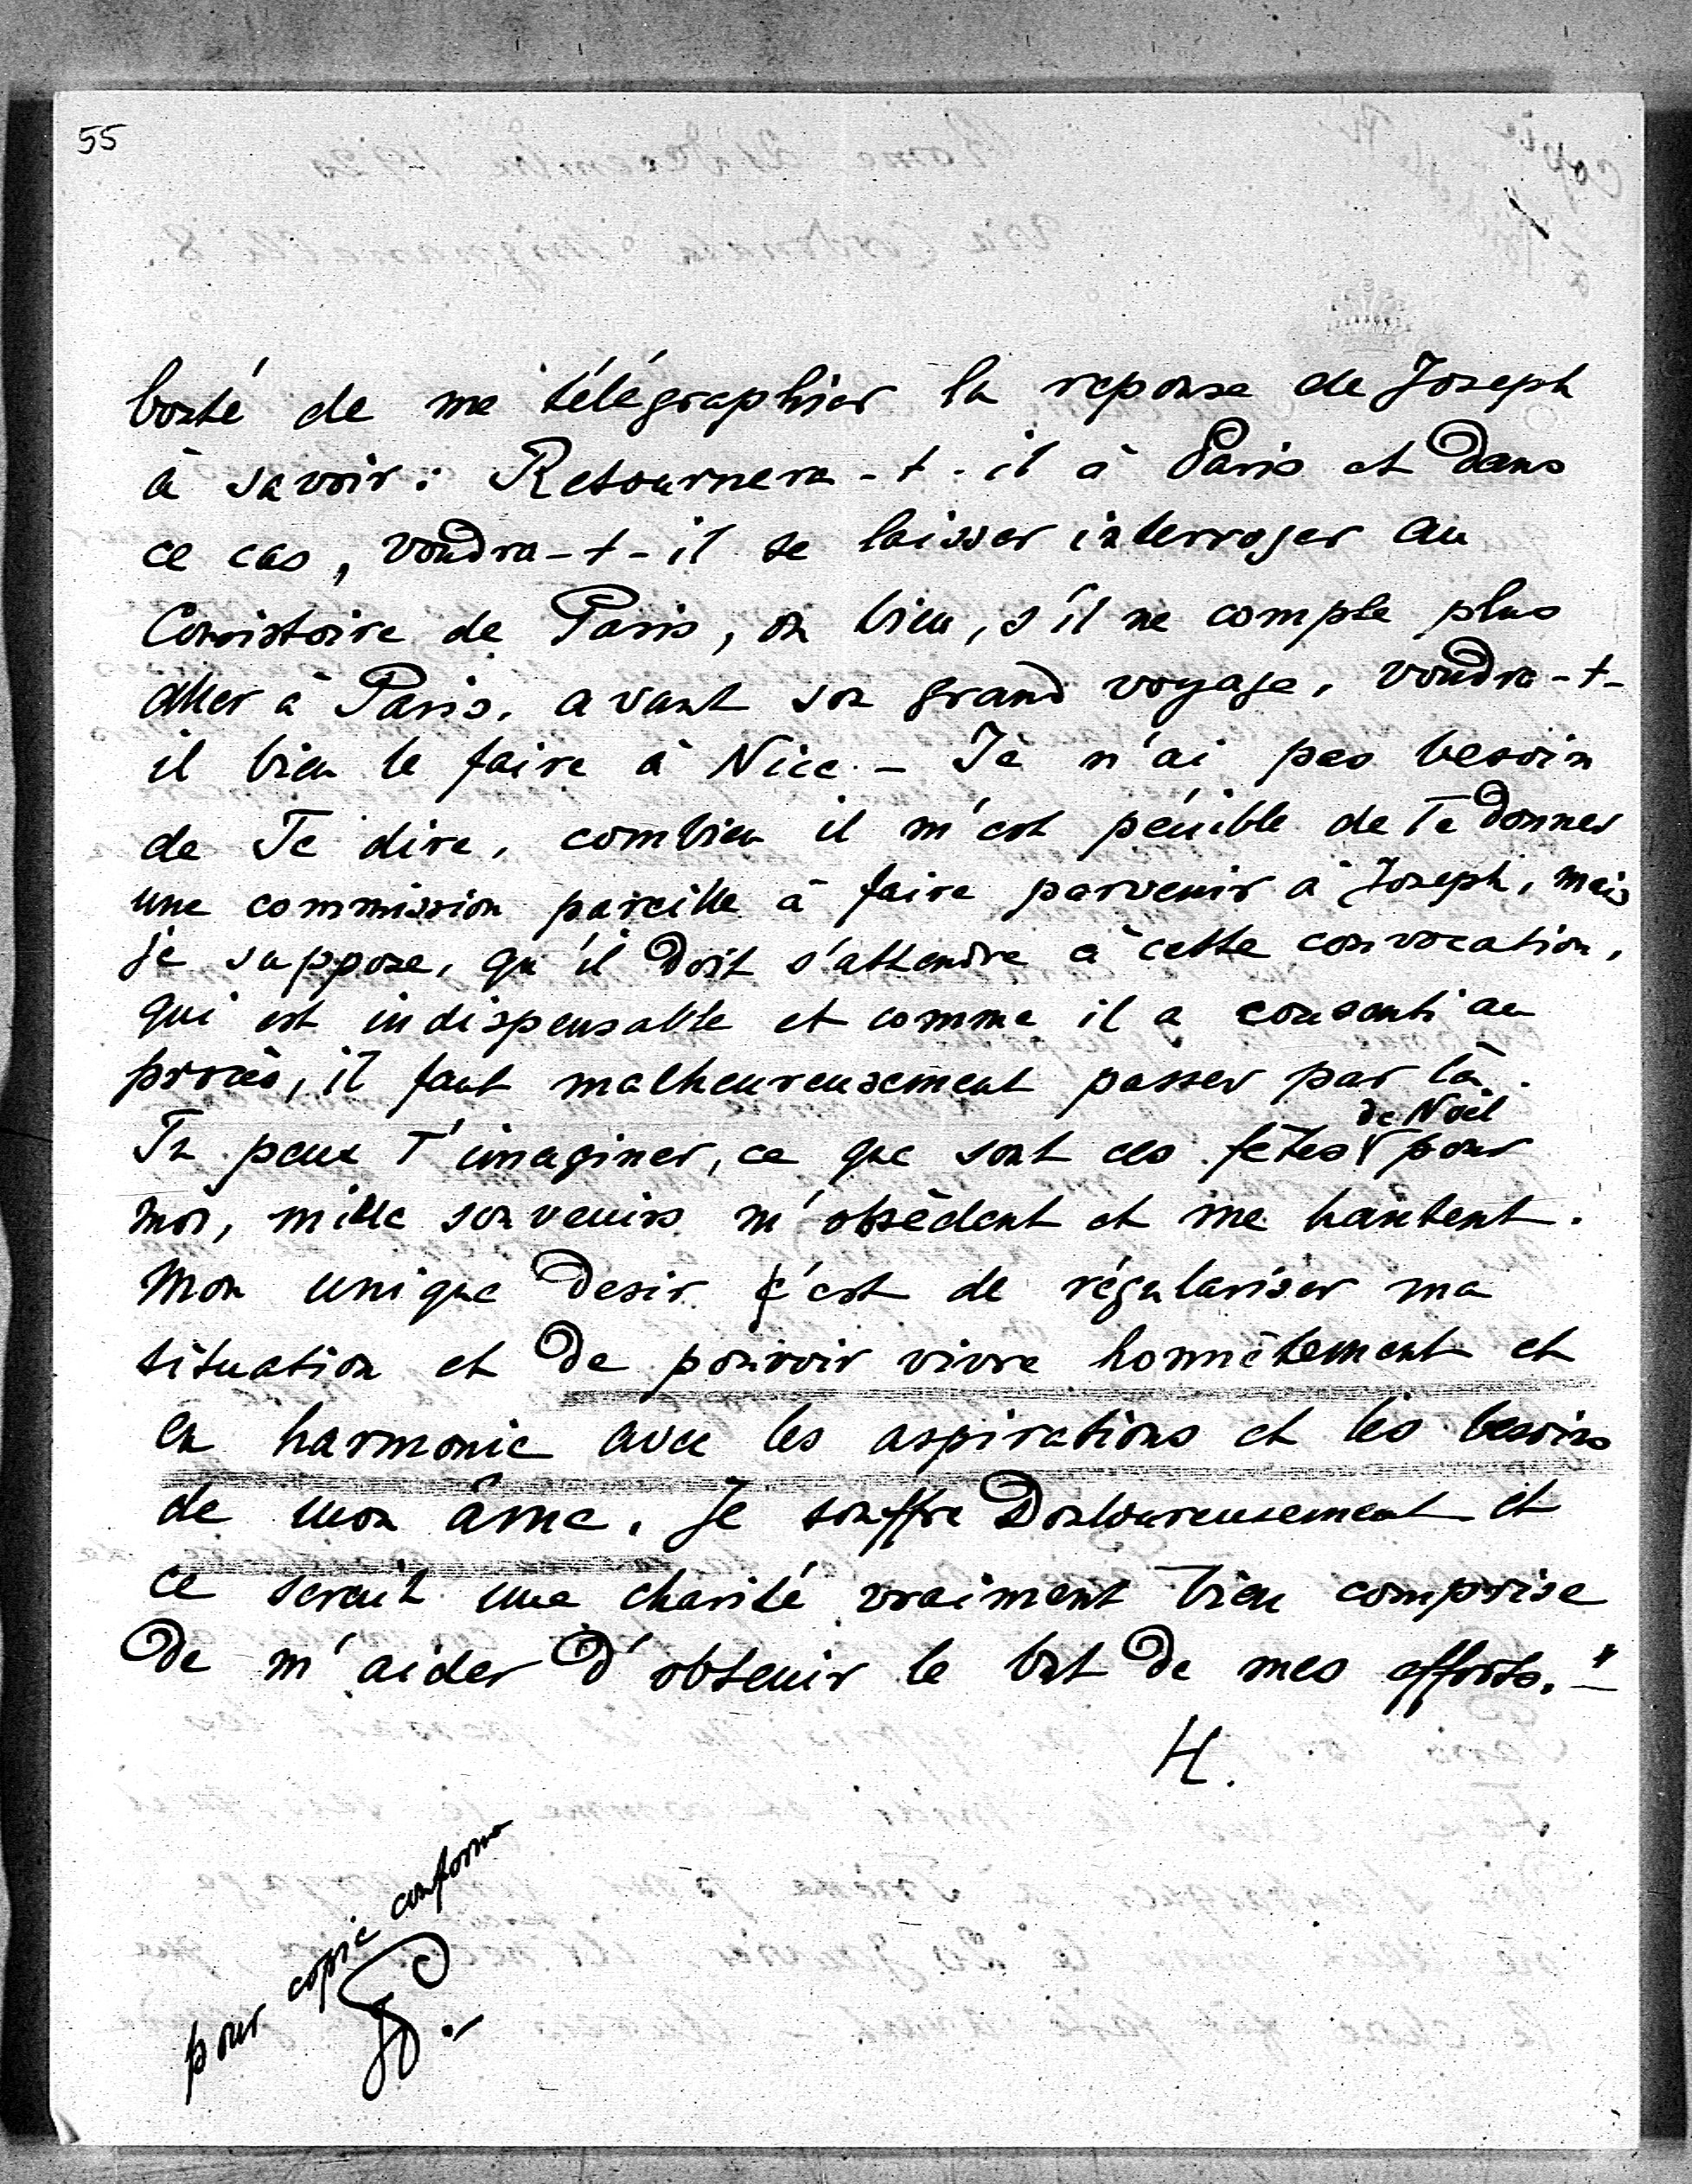 55
bonté de me télégraphier la reponse de Joseph
à savoir: Retournera-t-il à Paris et dans
ce cas, voudra-t-il se laisser interroger au
Consistoire de Paris, ou bien, s'il ne compte plus
aller à Paris, avant son grand voyage, voudra-t-
il bien le faire à Nice. - Je n'ai pas besoin
de Te dire, combien il m'est pénible de Te donner
une commission pareille à faire parvenir à Joseph, mais
je suppose, qu'il doit s'attendre à cette convocation,
qui est indispensable et comme il a consenti au
procès, il faut malheureusement passer par là.
Tu peux T'imaginer, ce que sont ces fêtes de Noël pour
moi, mille souvenirs m'obsèdent et me hantent.
Mon unique desir c'est de régulariser ma
situation et de pouvoir vivre honnêtement et
en harmonie avec les aspirations et les besoins
de mon âme. Je souffre douloureusement et
ce serait une charité vraiment bien comprise
de m'aider d'obtenir le but de mes efforts." -
H.
pour copie conforme